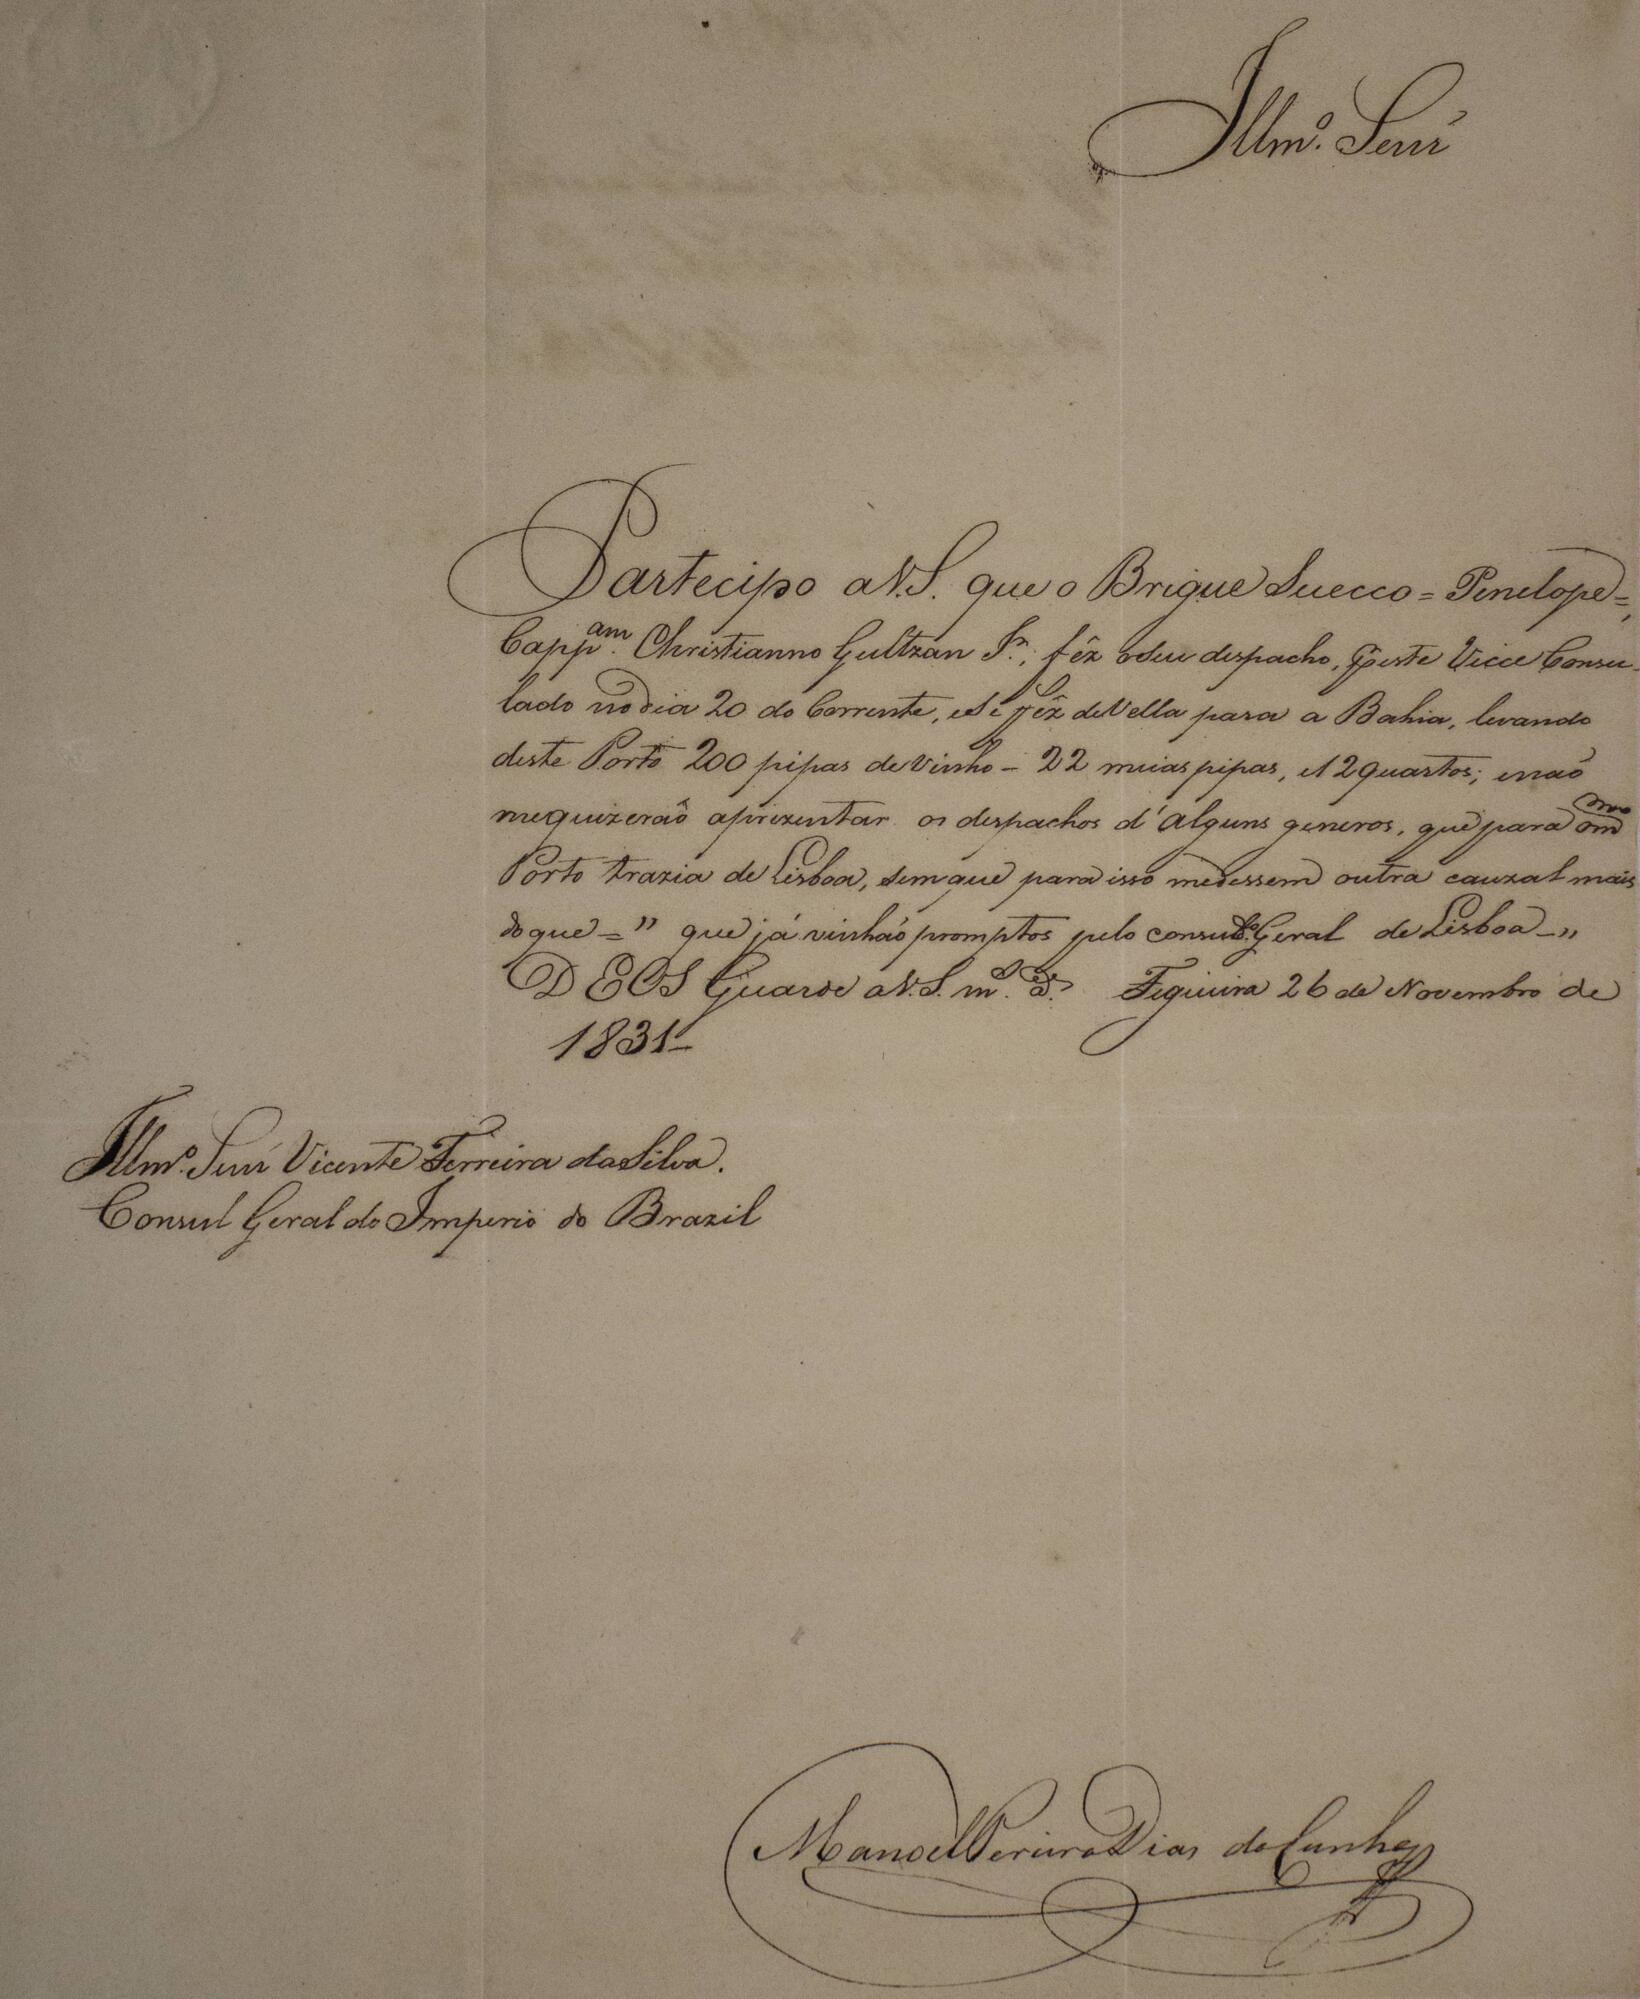 Illm.º Senr
Partecipo a V.S. que o Brigue Suecco = Penelope =,
Capp.am Christianno Gultzan Jr., fêz o seu despacho, p.r este Vicce Consu-
lado no dia 20 do Corrente, e Se fêz de Vella para a Bahia, levando
deste Porto 200 pipas de Vinho - 22 meias pipas, e 12 quartos; e naõ
me quizeraõ aprezentar os despachos d'alguns generos, que para o mmo
Porto trazia de Lisboa, sem que para isso me dessem outra cauzal mais
do que = " que já vinhaõ promptos pelo consul.do Geral de Lisboa - "
DEOS Guarde a V.S. m.s a.s Figueira 26 de Novembro de
1831 -
Illm.º Senr Vicente Ferreira da Silva.
Consul Geral do Imperio do Brazil
Manoel Pereira Dias da Cunha